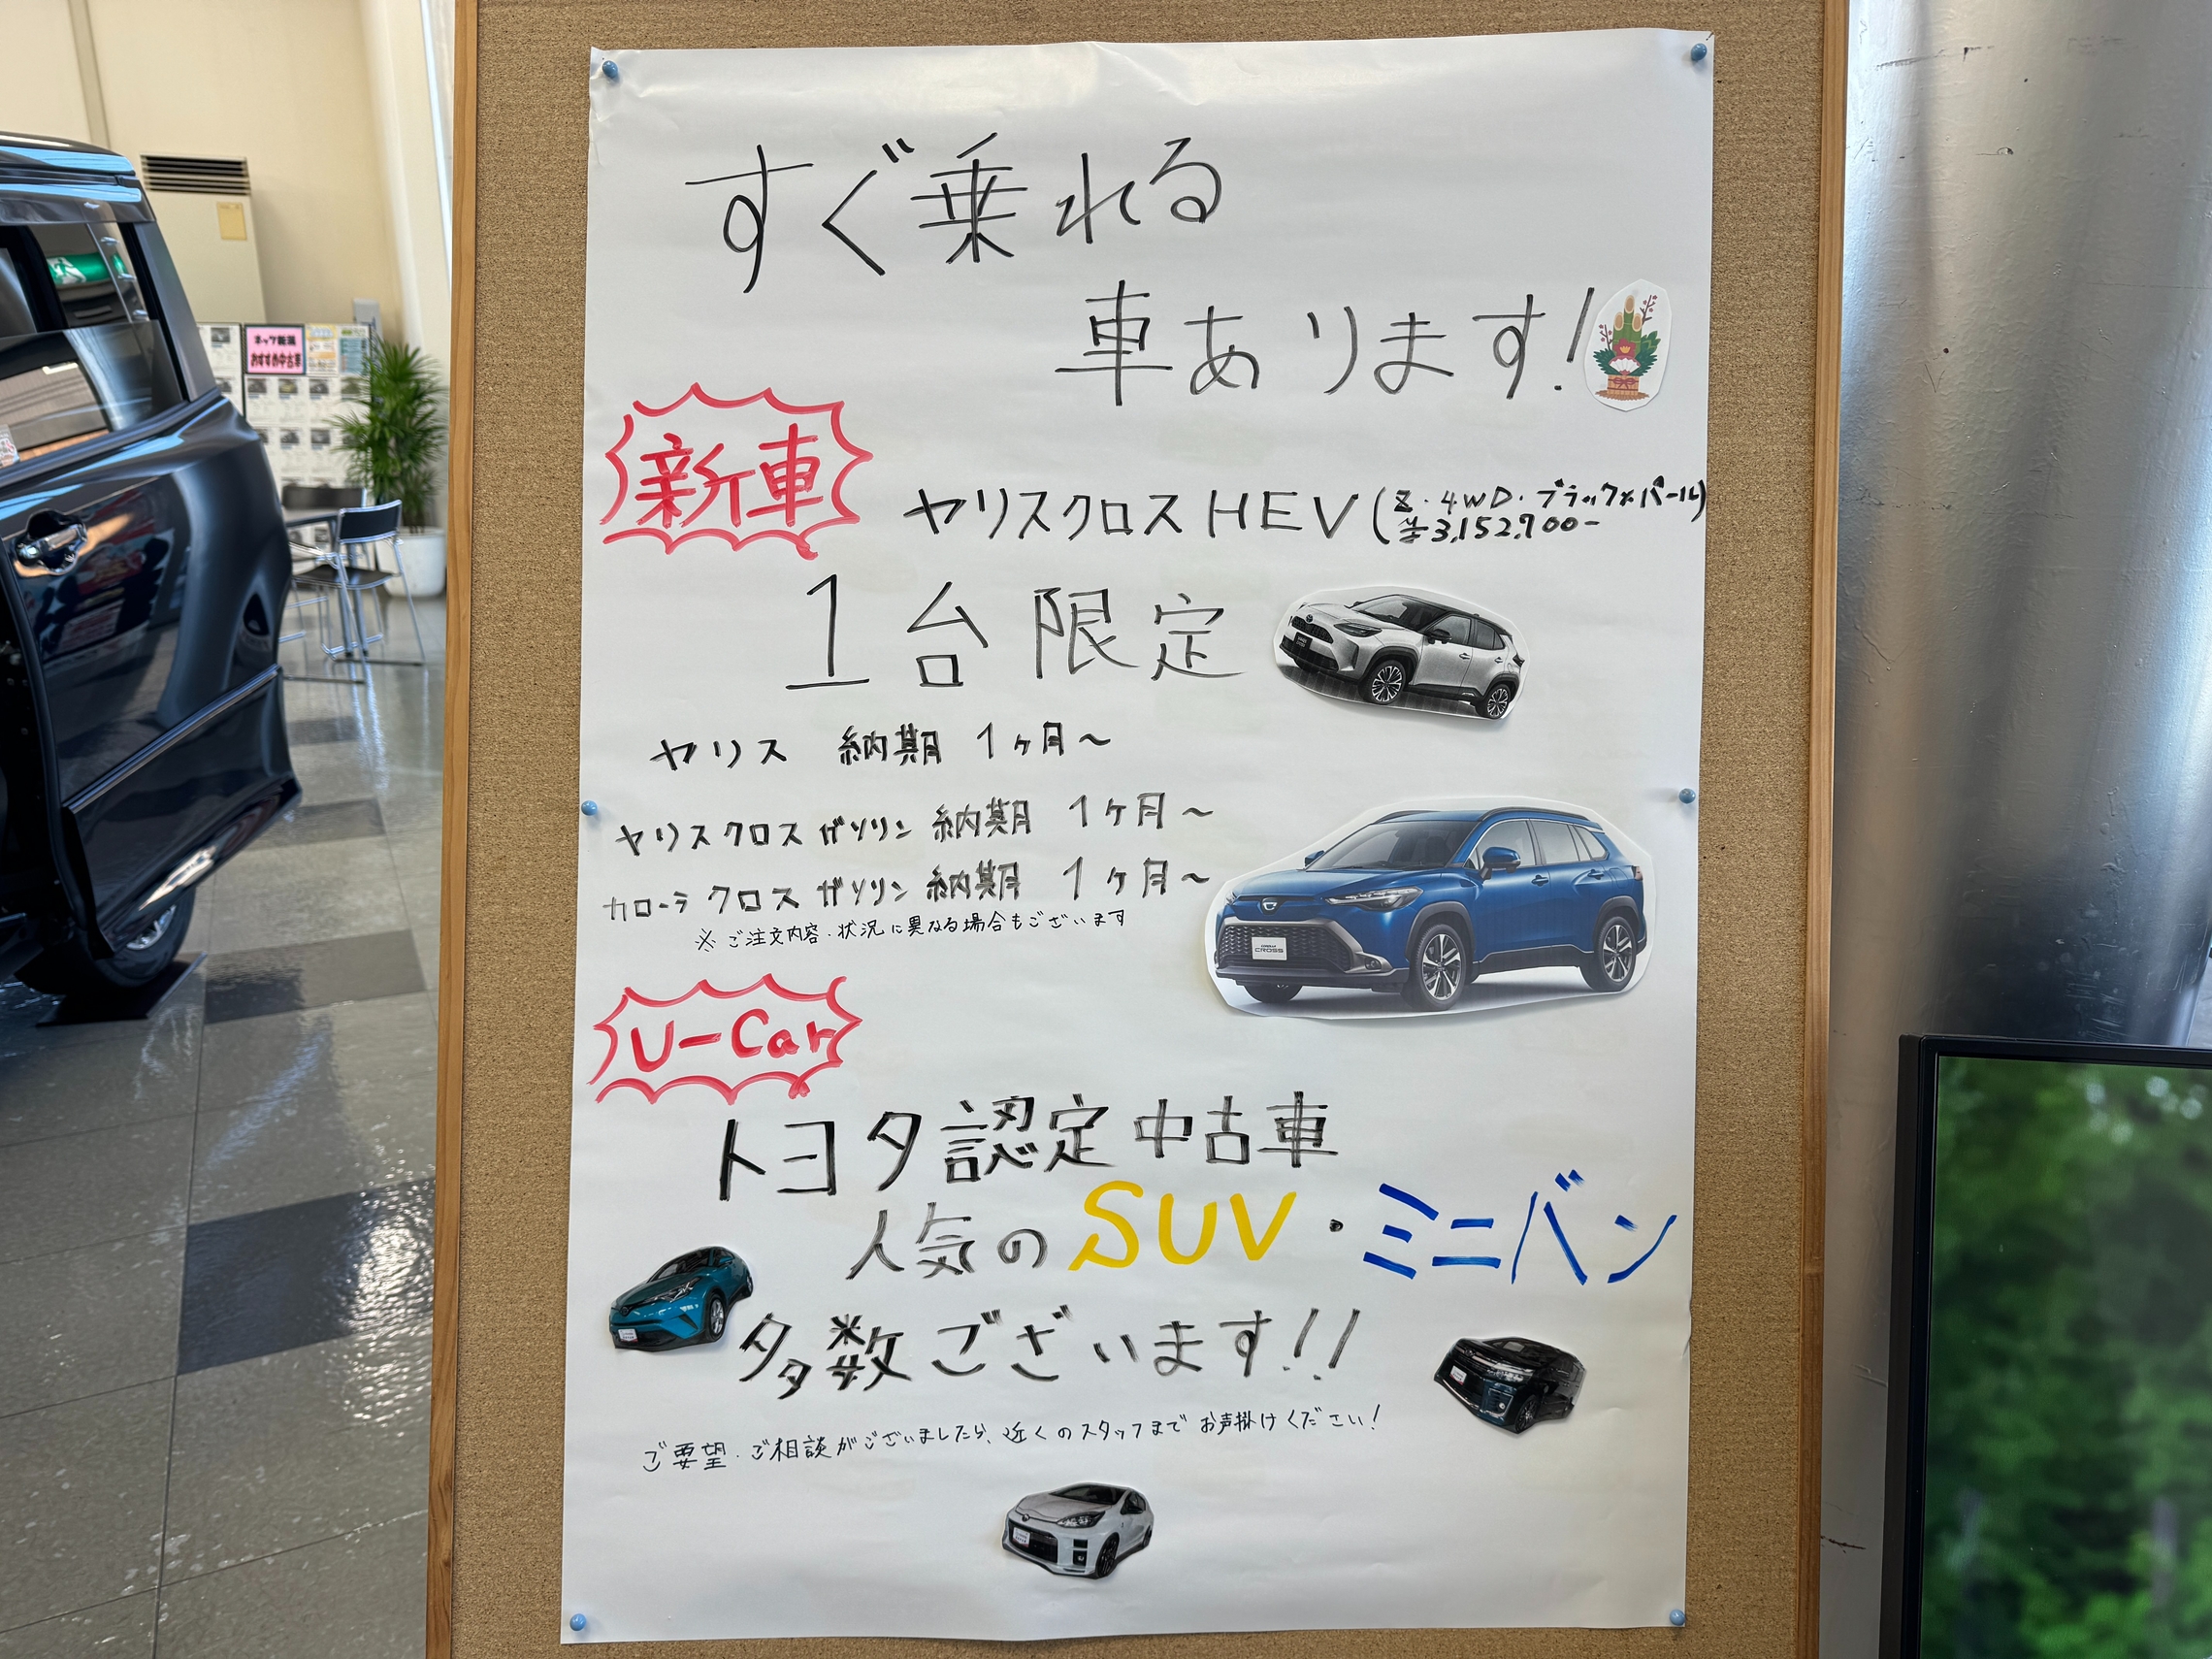 すぐ乗れる
車あります!
新車
ヤリスクロス HEV (Z・4WD・ブラック×パール)
¥3,152,700-
1台限定
ヤリス 納期 1ヶ月〜
ヤリスクロス ガソリン 納期 1ヶ月〜
カローラクロス ガソリン 納期 1ヶ月〜
※ ご注文内容・状況に異なる場合もございます
COROLLA
CROSS
U-Car
トヨタ認定中古車
人気の SUV・ミニバン
多数ございます!!
ご要望・ご相談がございましたら、近くのスタッフまで お声掛けください!
ネッツ新潟
おすすめ中古車